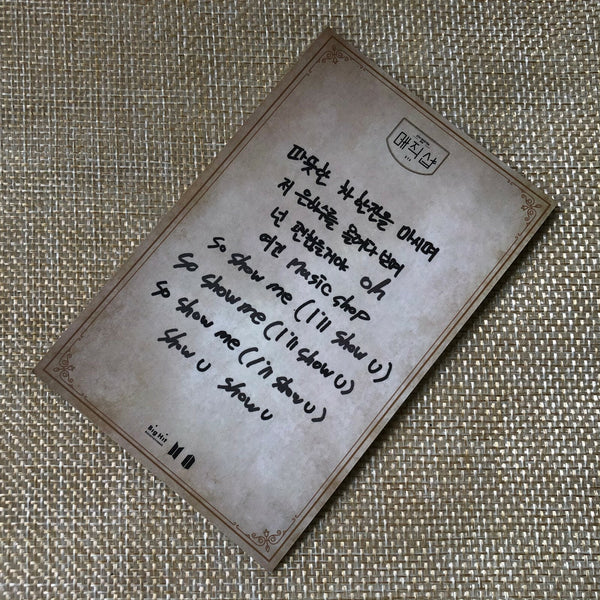 매직샵
따뜻한 차 한잔을 마시며
저 은하수를 올려다보며
넌 괜찮을거야 oh
이건 Magic Shop
So show me (I'll show U)
So show me (I'll show U)
So show me (I'll show U)
Show U Show U
BigHit